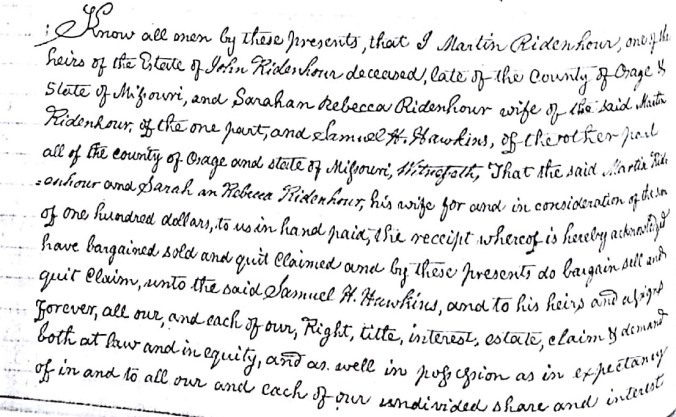 Know all men by these presents, that I Martin Ridenhour, one of the
heirs of the Estate of John Ridenhour deceased, late of the County of Osage &
State of Missouri, and Sarahan Rebecca Ridenhour wife of the said Martin
Ridenhour, of the one part, and Samuel H. Hawkins, of the other part
all of the county of Osage and state of Missouri, Witnesseth, That the said Martin Ride
=enhour and Sarah an Rebecca Ridenhour, his wife for and in consideration of the sum
of one hundred dollars, to us in hand paid, the receipt whereof is hereby acknowledged
have bargained sold and quit claimed and by these presents do bargain sell and
quit claim, unto the said Samuel H. Hawkins, and to his heirs and assigns
forever, all our, and each of our, Right, title, interest, estate, claim & demand
both at law and in equity, and as well in possession as in expectancy
of in and to all our and each of our undivided share and interest